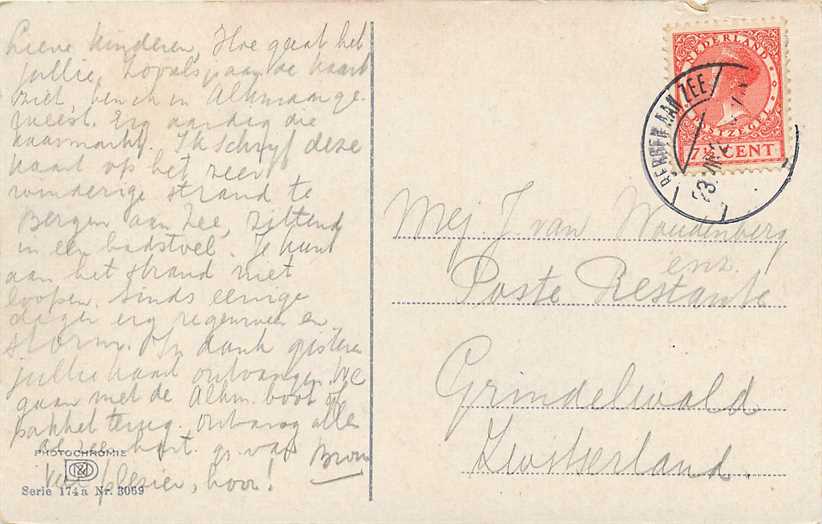 Lieve kinderen, Hoe gaat het
jullie. Zooals je aan de kaart
ziet, ben ik in Alkmaar ge-
weest. Erg aardig die
kaasmarkt. Ik schrijf deze
kaart op het zeer
winderige strand te
Bergen aan Zee, zittend
in een badstoel. Je kunt
aan het strand niet
loopen. Sinds eenige
dagen erg regenweer en
storm. In dank gisteren
jullie kaart ontvangen. We
gaan met de Alkm. boot
pakket terug. Ontvang allen
hart. gr. van Bram
Veel plezier, hoor!
PHOTOCHROMIE
Serie 174a Nr. 3069
NEDERLAND
POSTZEGEL
7½ CENT
BERGEN AAN ZEE
Mej. J. van Woudenberg
enz.
Poste Restante
Grindelwald
Zwitserland.